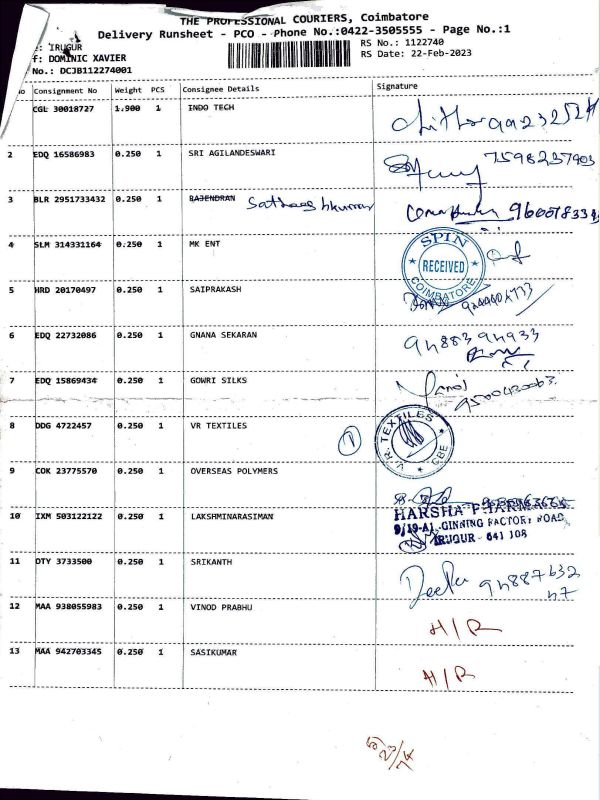 THE PROFESSIONAL COURIERS, Coimbatore
Delivery Runsheet - PCO - Phone No.:0422-3505555 - Page No.:1
: IRUGUR
f: DOMINIC XAVIER
No.: DCJB112274001
RS No.: 1122740
RS Date: 22-Feb-2023
No Consignment No Weight PCS Consignee Details Signature
CGL 30018727 1.900 1 INDO TECH
2 EDQ 16586983 0.250 1 SRI AGILANDESWARI 7598237903
3 BLR 2951733432 0.250 1 RAJENDRAN
4 SLM 314331164 0.250 1 MK ENT SPIN RECEIVED COIMBATORE
5 HRD 20170497 0.250 1 SAIPRAKASH
6 EDQ 22732086 0.250 1 GNANA SEKARAN
7 EDQ 15869434 0.250 1 GOWRI SILKS
8 DDG 4722457 0.250 1 VR TEXTILES 1 V.R. TEXTILES CBE
9 COK 23775570 0.250 1 OVERSEAS POLYMERS
10 IXM 503122122 0.250 1 LAKSHMINARASIMAN
HARSHA PHARMA
9/19-A1, GINNING FACTORY ROAD,
IRUGUR - 641 103
11 OTY 3733500 0.250 1 SRIKANTH
12 MAA 938055983 0.250 1 VINOD PRABHU H/R
13 MAA 942703345 0.250 1 SASIKUMAR H/R